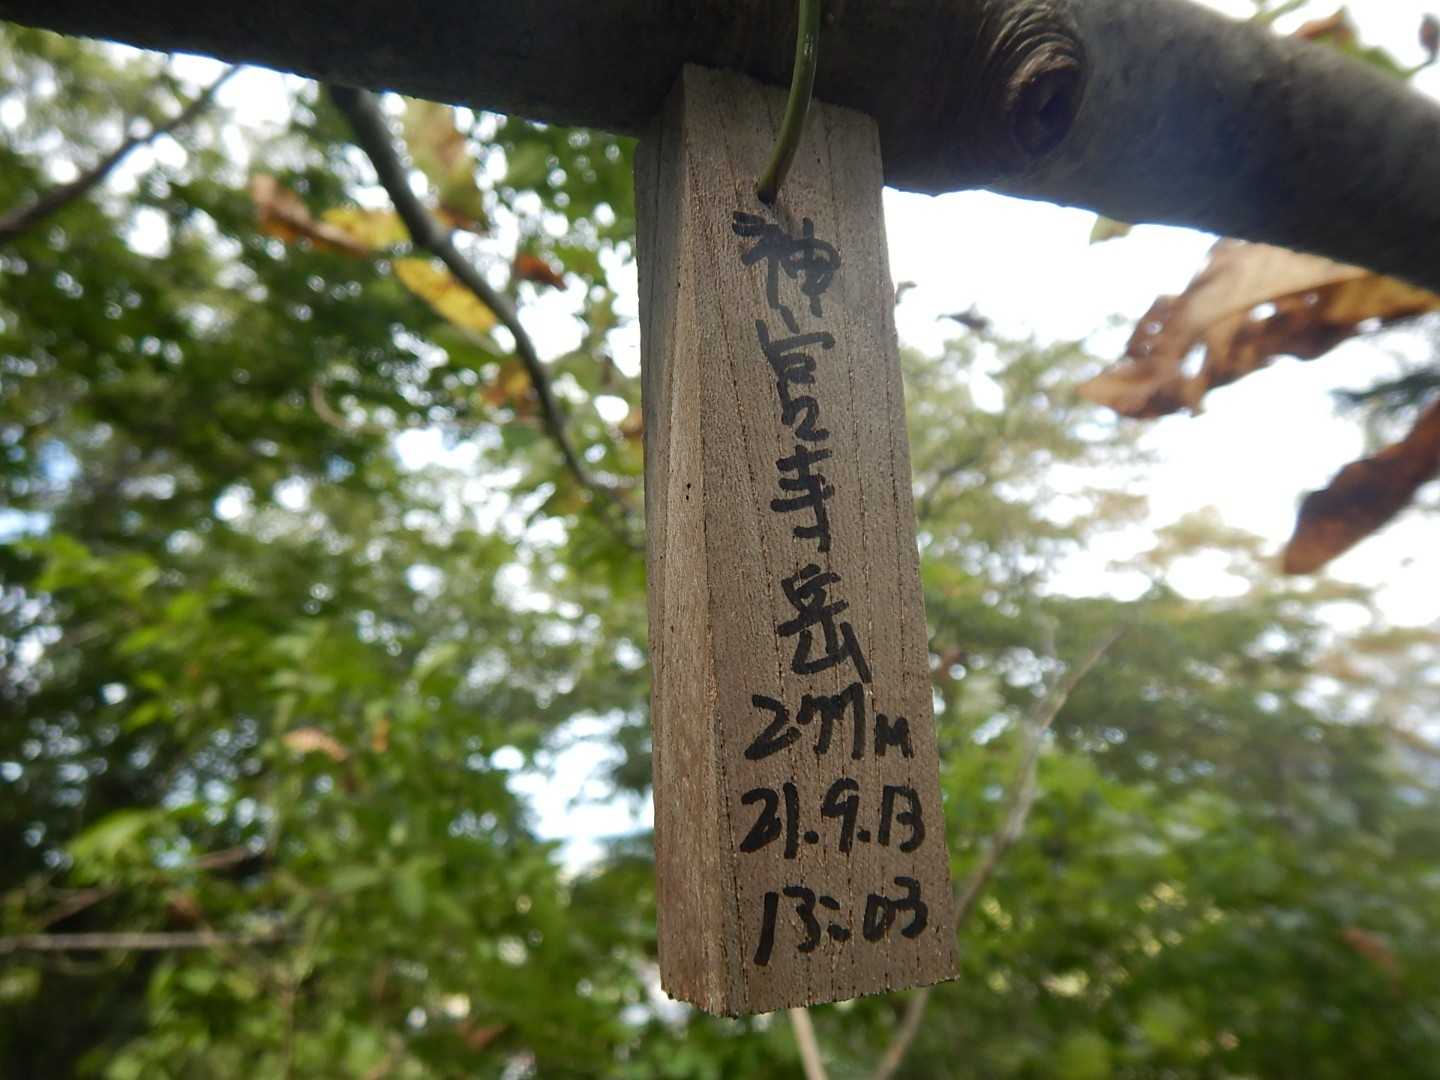 神宮寺岳
277M
21.9.13
13:03